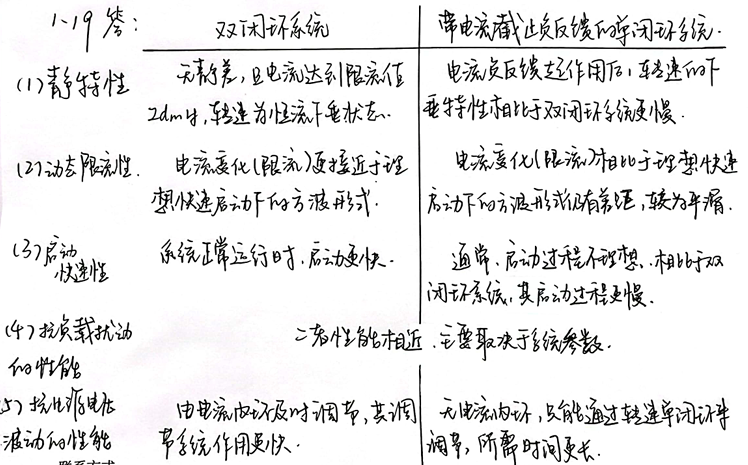 1-19 答:
双闭环系统
带电流截止负反馈的单闭环系统.
(1)静特性
无静差,且电流达到限流值
Idm时,转速为恒流下垂状态.
电流负反馈起作用后,转速的下
垂特性相比于双闭环系统更慢.
(2)动态限流性.
电流变化(限流)更接近于理
想快速启动下的方波形式.
电流变化(限流)相比于理想快速
启动下的方波形式仍有差距,较为平滑.
(3)启动
快速性
系统正常运行时,启动更快.
通常,启动过程不理想,相比于双
闭环系统,其启动过程更慢.
(4)抗负载扰动
的性能
二者性能相近,主要取决于系统参数.
(5)抗电源电压
波动的性能
由电流内环及时调节,其调
节系统作用更快.
无电流内环,只能通过转速单闭环来
调节,所需时间更长.